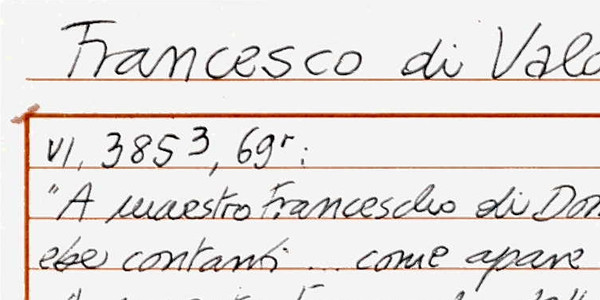 Francesco di Vald
VI, 3853, 69r:
"A maestro Francescho di Don
ebe contanti ... come apare